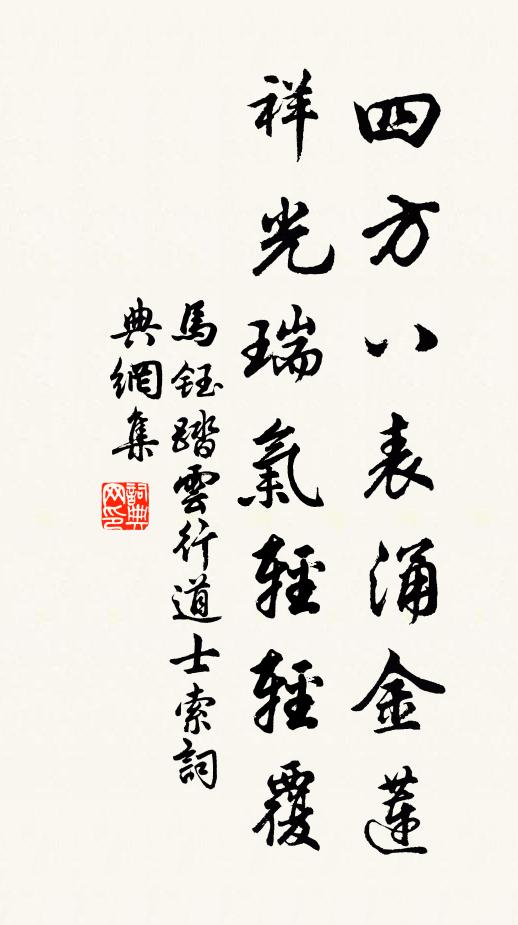 四方八表涌金蓮
祥光瑞氣輕輕覆
馬鈺踏雲行道士索詞
典網集
詞典网印